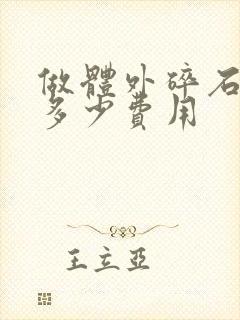 做體外碎石
多少費用
王立亞